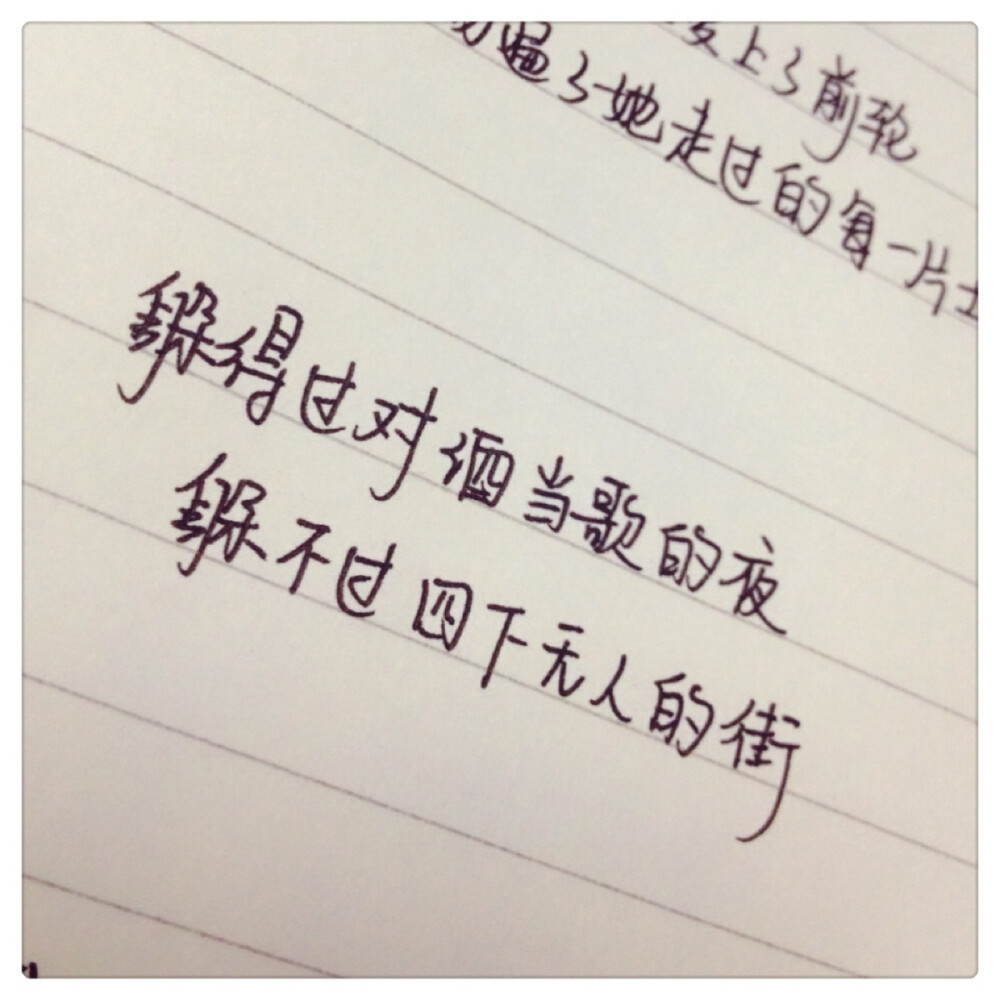 上了前轮
遍了她走过的每一片
躲得过对酒当歌的夜
躲不过四下无人的街